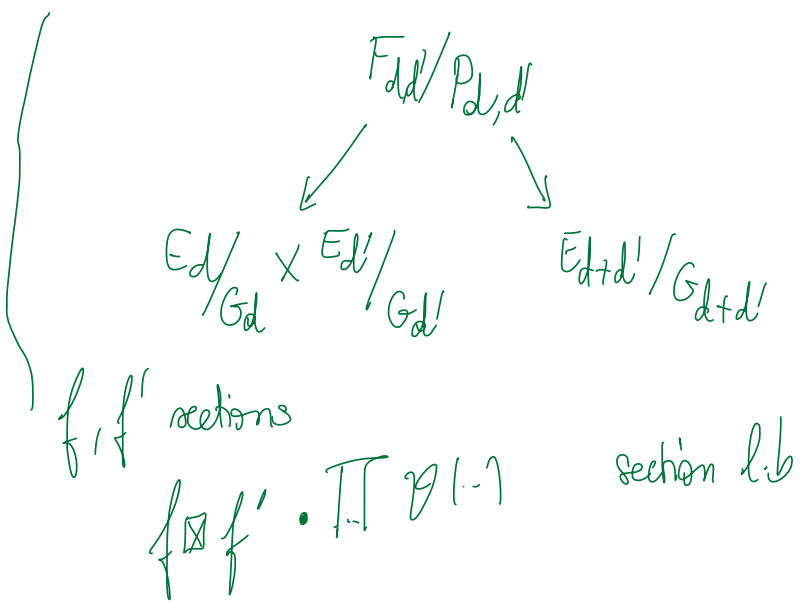 F_{d,d'}/P_{d,d'}
E_d/G_d × E_{d'}/G_{d'} E_{d+d'}/G_{d+d'}
f, f' sections
section l.b
f ⊠ f' · ∏ ϑ(...)